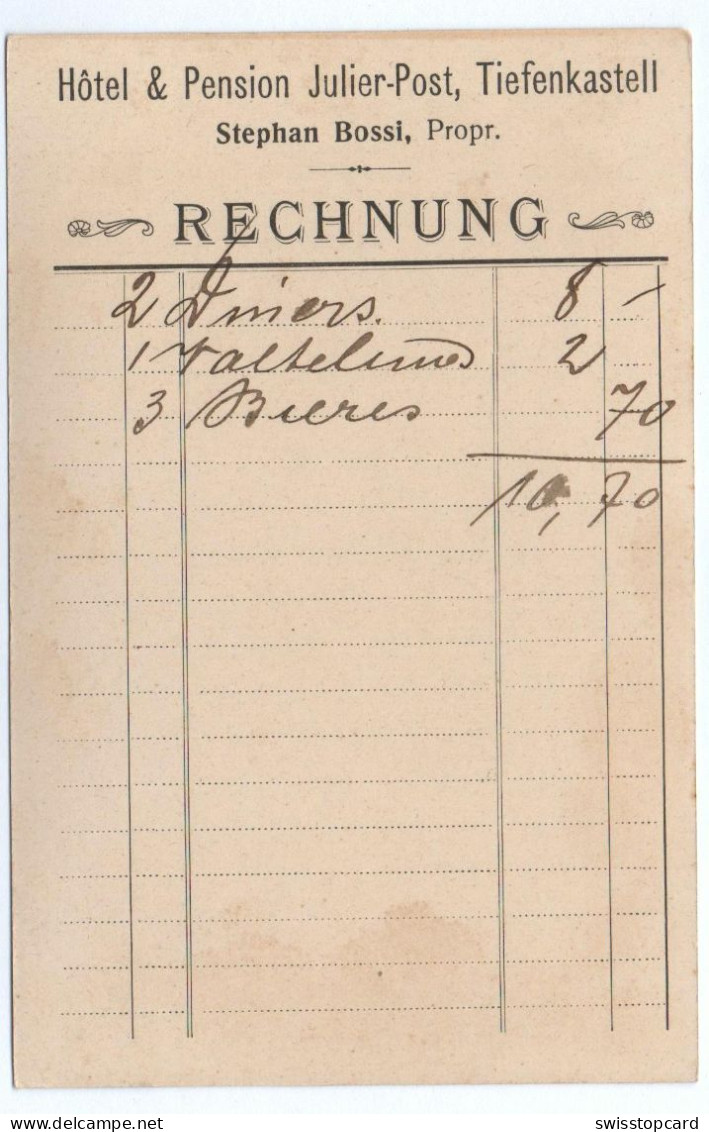 Hôtel & Pension Julier-Post, Tiefenkastell
Stephan Bossi, Propr.
RECHNUNG
2 Diners. 8 —
1 2
3 Bieres 70
10,70
swisstopcard